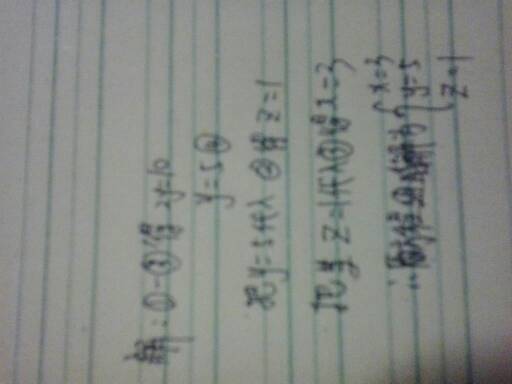 解：①-③得 2y=10
y=5 ④
把y=5代入②得 z=1
把 z=1代入①得 x=3
∴ { x=3
y=5
z=1